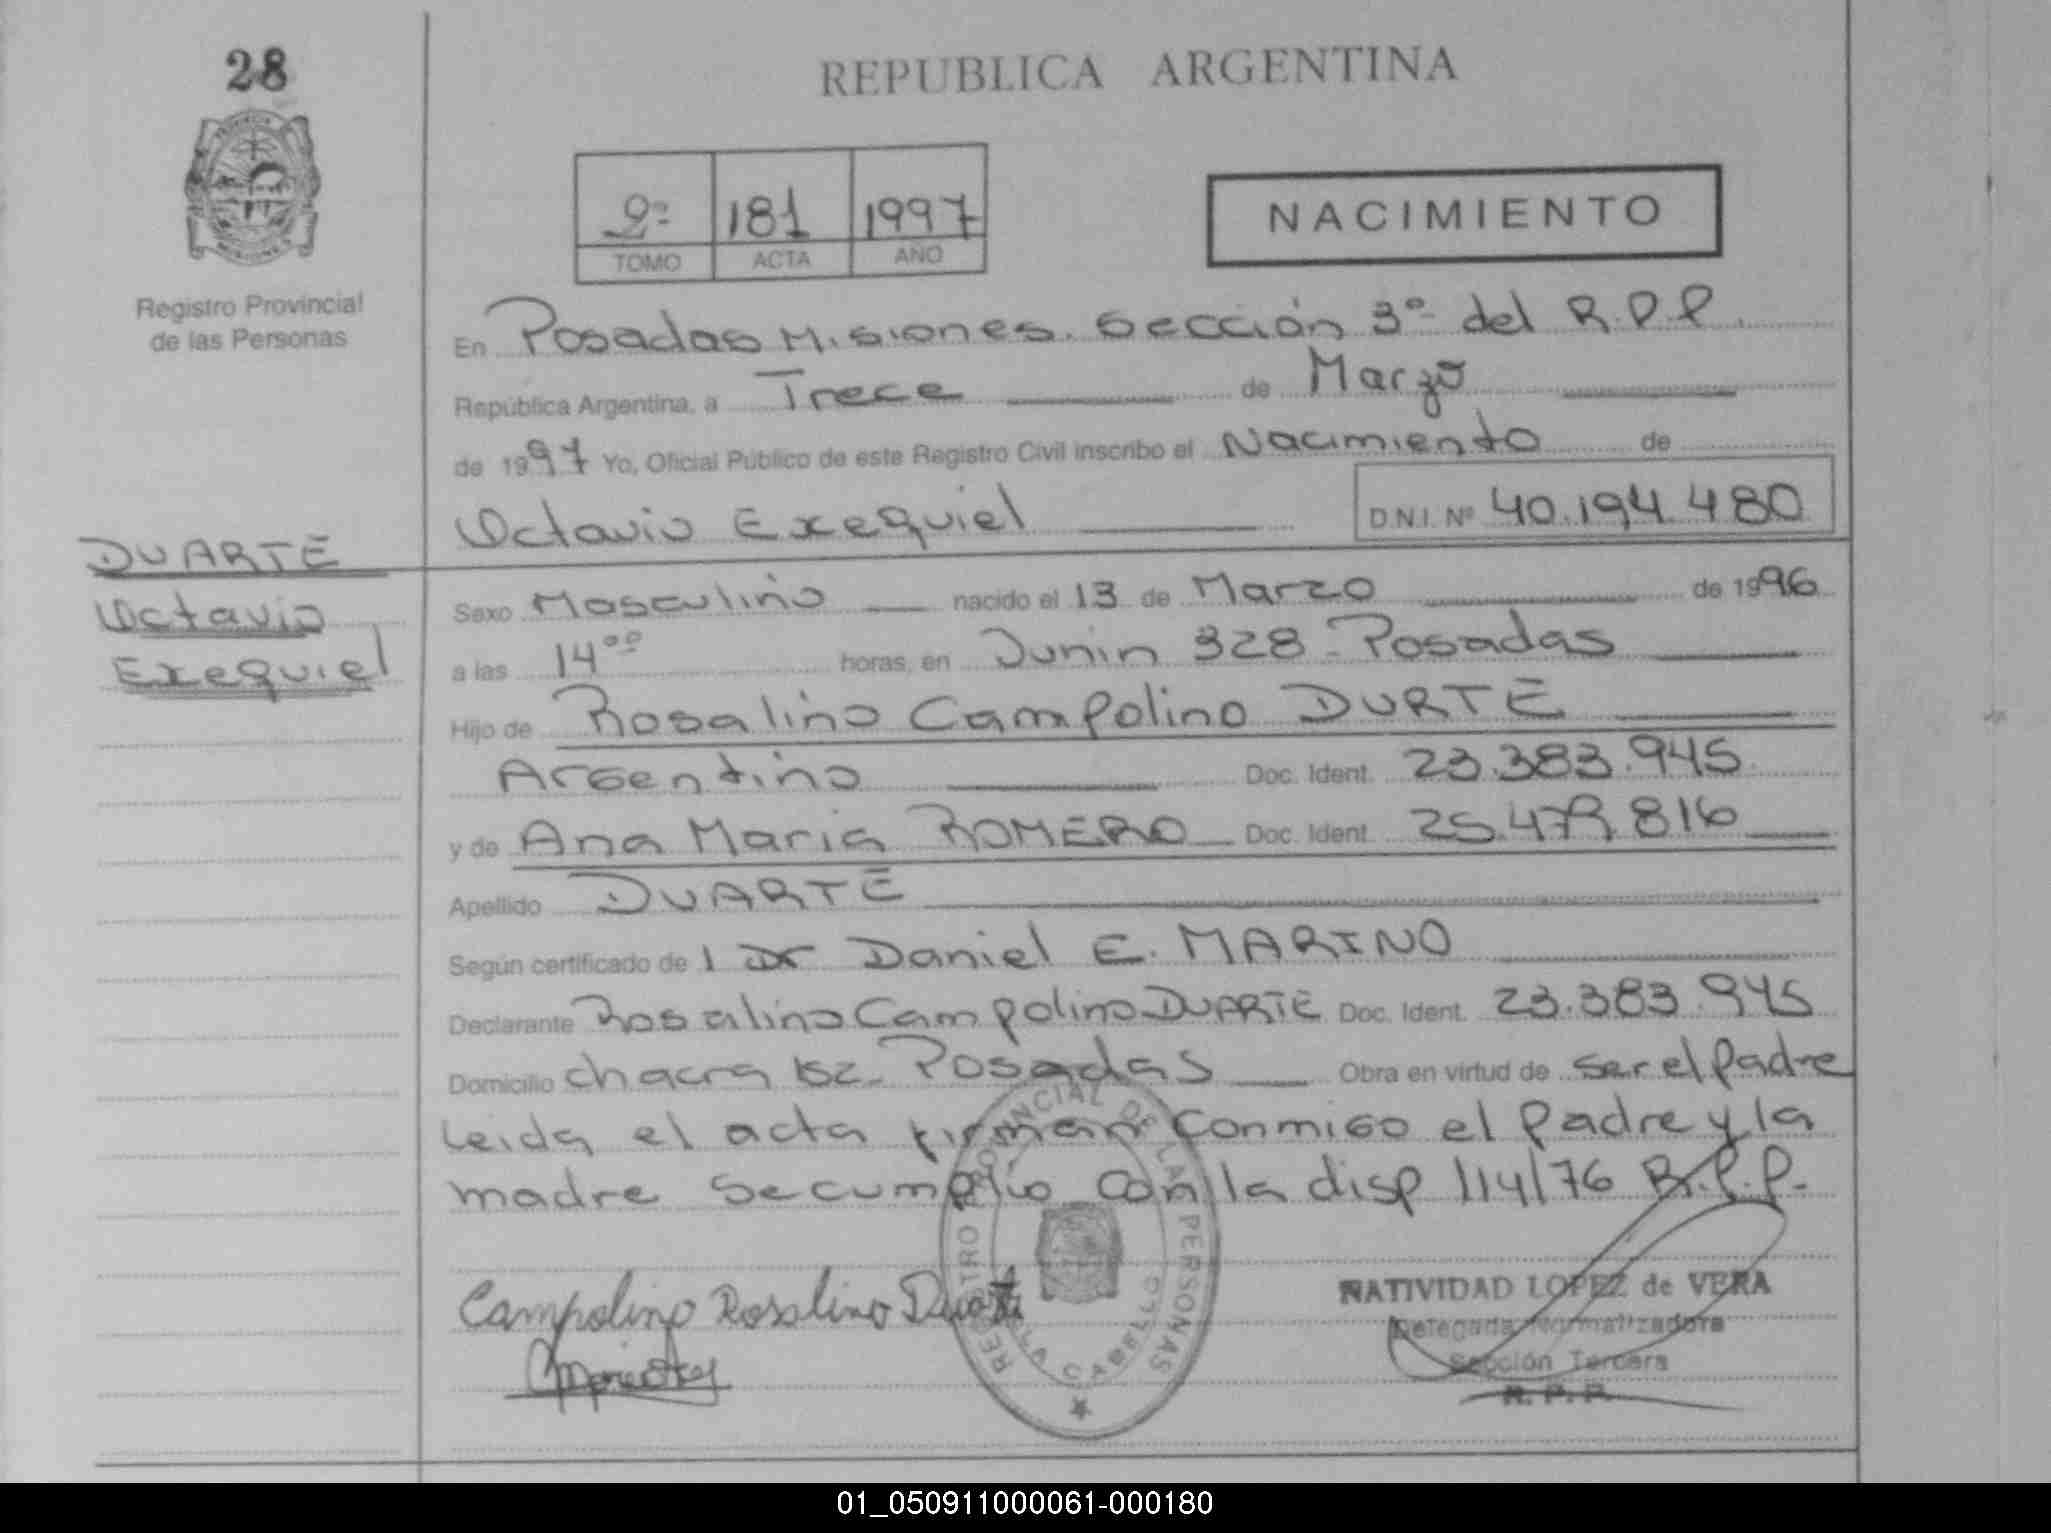 28
REPUBLICA ARGENTINA
2º 181 1997
TOMO ACTA AÑO
NACIMIENTO
Registro Provincial
de las Personas
En Posadas Misiones. Sección 3º del R.P.P.
República Argentina, a Trece de Marzo
de 1997 Yo, Oficial Público de este Registro Civil inscribo el Nacimiento de
Octavio Exequiel D.N.I. Nº 40.194.480
DUARTE
Octavio
Exequiel
Sexo Masculino nacido el 13 de Marzo de 1996
a las 14⁰⁰ horas, en Junin 328 - Posadas
Hijo de Rosalino Campolino DURTE
Argentino Doc. Ident. 23.383.945
y de Ana Maria ROMERO Doc. Ident. 25.479.816
Apellido DUARTE
Según certificado de l Dr Daniel E. MARINO
Declarante Rosalino Campolino DUARTE Doc. Ident. 23.383.945
Domicilio chacra 152 - Posadas Obra en virtud de ser el Padre
Leida el acta firman conmigo el Padre y la
madre Se cumplio con la disp 114/76 R.P.P.
Campolino Rosalino Duarte
REGISTRO PROVINCIAL DE LAS PERSONAS
VILLA CABELLO
NATIVIDAD LOPEZ de VERA
Delegada Normalizadora
Sección Tercera
R.P.P.
01_050911000061-000180